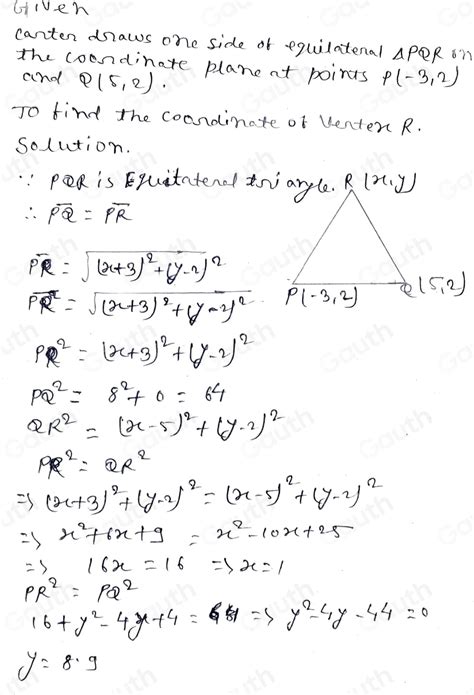 Given
Carter draws one side of equilateral △PQR on
the coordinate plane at points P(-3,2)
and Q(5,2).
To find the coordinate of Vertex R.
Solution.
∵ PQR is Equitateral triangle. R(x,y)
∴ PQ̅ = PR̅
PR̅ = √(x+3)²+(y-2)²
PR̅² = √(x+3)²+(y-2)²
P(-3,2) Q(5,2)
PR² = (x+3)²+(y-2)²
PQ² = 8²+0 = 64
QR² = (x-5)²+(y-2)²
PR² = QR²
=> (x+3)²+(y-2)² = (x-5)²+(y-2)²
=> x²+6x+9 = x²-10x+25
=> 16x = 16 => x=1
PR² = PQ²
16+y²-4y+4 = 64 => y²-4y-44=0
y = 8.9